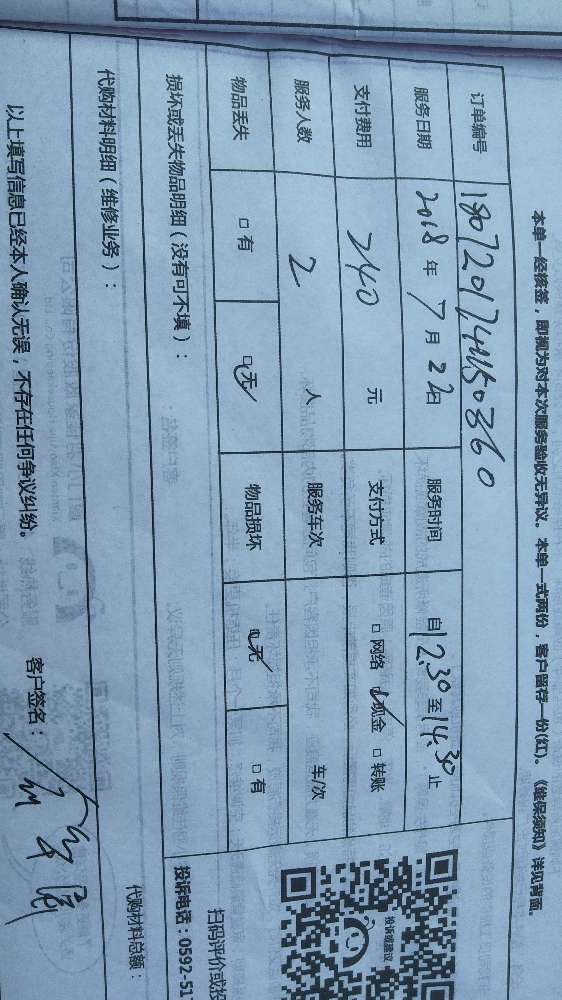 本单一经核签，即视为对本次服务验收无异议。本单一式两份，客户留存一份(红)。《维保须知》详见背面。
订单编号
服务日期 2018 年 7 月 22日 服务时间 自12:30至14:30止
支付费用 240 元 支付方式 □ 网络 ☑现金 □ 转账
服务人数 2 人 服务车次 车/次
物品丢失 □ 有 ☑无 物品损坏 ☑无 □ 有
损坏或丢失物品明细（没有可不填）：
代购材料明细（维修业务）：
代购材料总额：
以上填写信息已经本人确认无误，不存在任何争议纠纷。 客户签名：
投诉或建议
扫码评价或投
投诉电话：0592-517